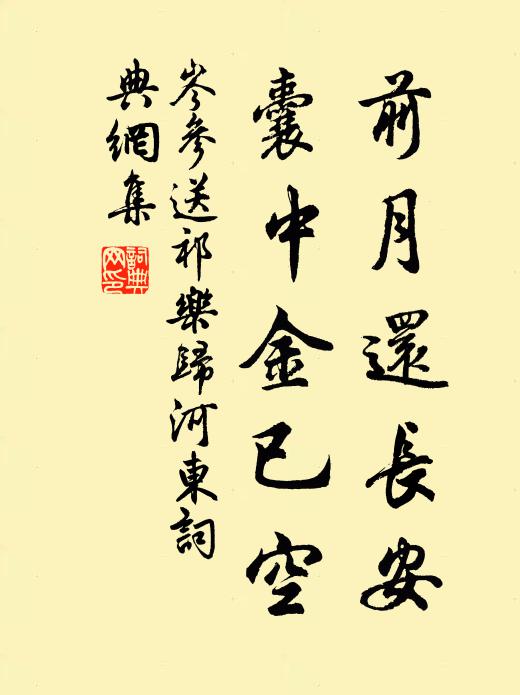 前月還長安
囊中金已空
岑參送祁樂歸河東詞
典網集
詞典
网印